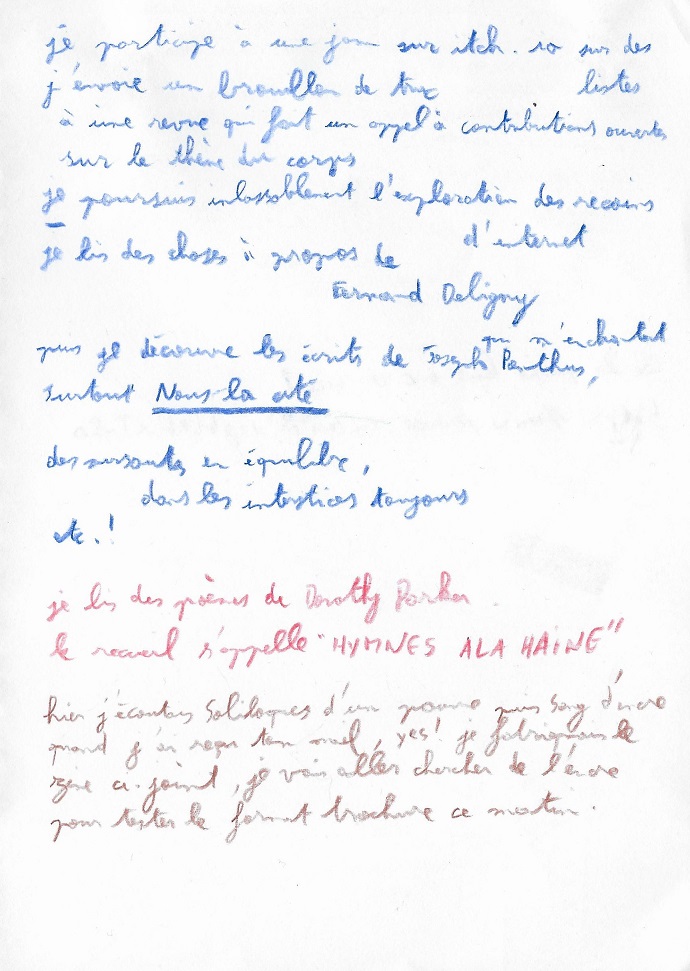 je participe à une jam sur itch.io sur des
listes
j'envoie un brouillon de trux
à une revue qui fait un appel à contributions ouvertes
sur le thème du corps
je poursuis inlassablement l'exploration des recoins
d'internet
je lis des choses à propos de
Fernand Deligny
puis je découvre les écrits de Joseph Ponthus,
qui m'enchantent
surtout Nous la cité
des sursauts en équilibre,
dans les interstices toujours
etc.!
je lis des poèmes de Dorothy Parker.
le recueil s'appelle "HYMNES A LA HAINE"
hier j'écoutais Soliloques d'un pauvre puis Sang d'encre
quand j'ai reçu ton mail, yes! je fabriquais le
zine ci-joint, je vais aller chercher de l'encre
pour tester le format brochure ce matin.